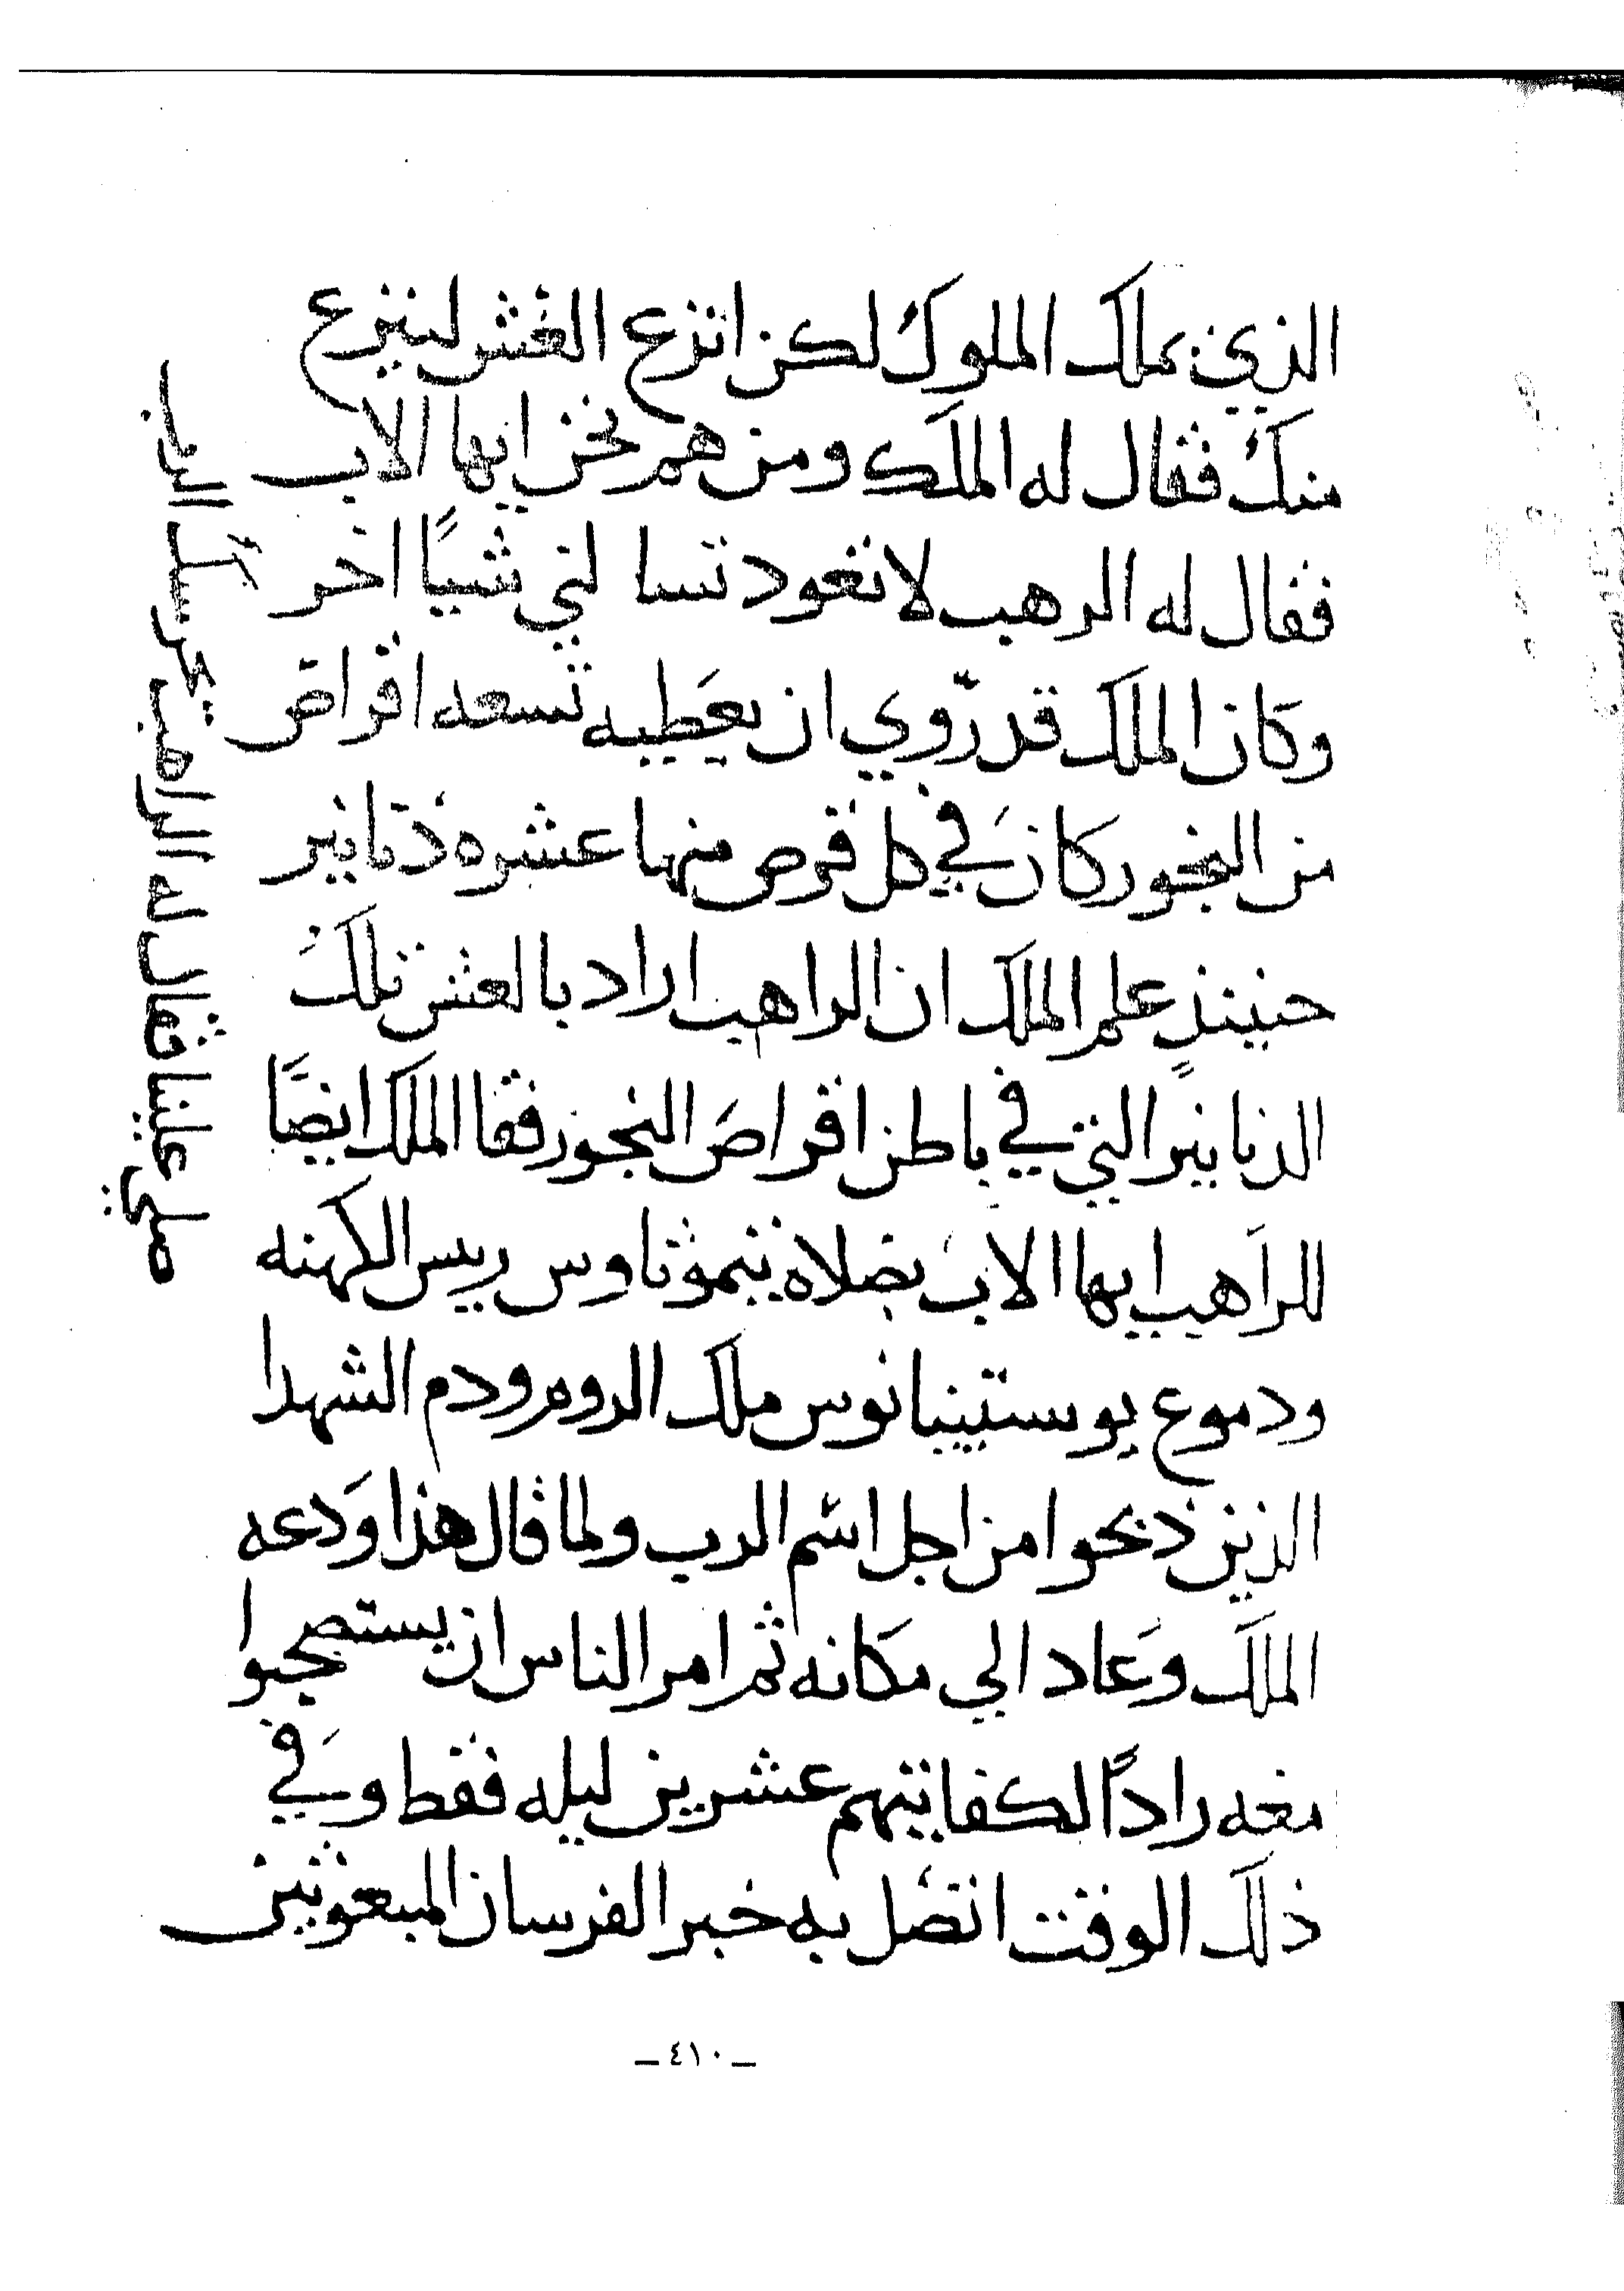 الذي يملك الملوك لكن انزع الغش لينزع
منك فقال له الملك ومن هم نحن ايها الاب
فقال له الرهب لا تعود تسا لني شيًا اخر
وكان الملك قد روّي ان يعطيه تسعه اقراص
من البخور كان في كل قرص منها عشره دنانير
حينيذٍ علم الملك ان الراهب اراد بالغش تلك
الدنانير التي في باطن اقراص البخور فقا الملك ايضًا
للراهب ايها الاب بصلاة تيموثاوس ريس الكهنه
ودموع يوستينيانوس ملك الروم ودم الشهدا
الذين ذبحوا من اجل اسم الرب ولما قال هذا ودعه
الملك وعاد الي مكانه ثم امر الناس ان يستصحبوا
معه زادًا لكفايتهم عشرين ليله فقط وفي
ذلك الوقت اتصل به خبر الفرسان المبعوثين
صلي علينا فقال له الراهب
ـ ٤١٠ ـ